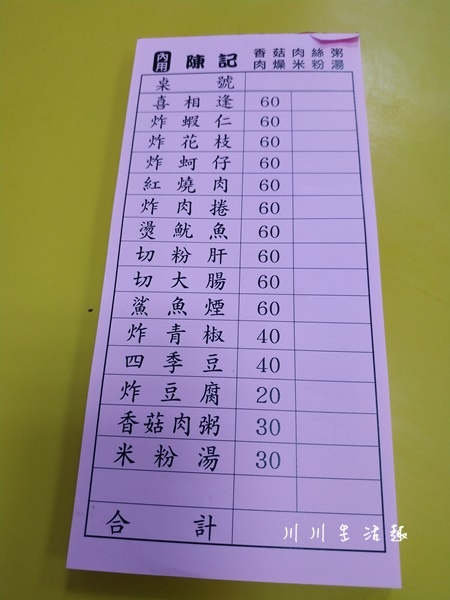 內用 陳記 香菇肉絲粥
肉燥米粉湯
桌號
喜相逢 60
炸蝦仁 60
炸花枝 60
炸蚵仔 60
紅燒肉 60
炸肉捲 60
燙魷魚 60
切粉肝 60
切大腸 60
鯊魚煙 60
炸青椒 40
四季豆 40
炸豆腐 20
香菇肉粥 30
米粉湯 30
合計
川川生活趣